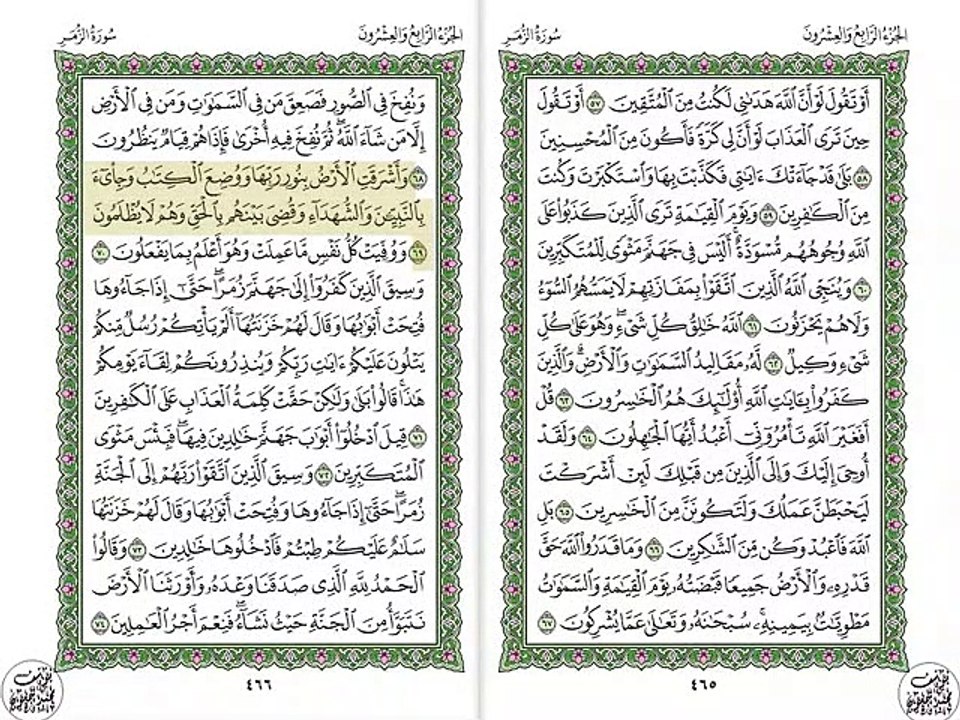 الجزء الرابع والعشرون
سورة الزمر
أَوْ تَقُولَ لَوْ أَنَّ ٱللَّهَ هَدَىٰنِى لَكُنتُ مِنَ ٱلْمُتَّقِينَ ٥٧ أَوْ تَقُولَ
حِينَ تَرَى ٱلْعَذَابَ لَوْ أَنَّ لِى كَرَّةً فَأَكُونَ مِنَ ٱلْمُحْسِنِينَ
٥٨ بَلَىٰ قَدْ جَآءَتْكَ ءَايَٰتِى فَكَذَّبْتَ بِهَا وَٱسْتَكْبَرْتَ وَكُنتَ
مِنَ ٱلْكَٰفِرِينَ ٥٩ وَيَوْمَ ٱلْقِيَٰمَةِ تَرَى ٱلَّذِينَ كَذَبُوا۟ عَلَى
ٱللَّهِ وُجُوهُهُم مُّسْوَدَّةٌ ۚ أَلَيْسَ فِى جَهَنَّمَ مَثْوًى لِّلْمُتَكَبِّرِينَ
٦٠ وَيُنَجِّى ٱللَّهُ ٱلَّذِينَ ٱتَّقَوْا۟ بِمَفَازَتِهِمْ لَا يَمَسُّهُمُ ٱلسُّوٓءُ
وَلَا هُمْ يَحْزَنُونَ ٦١ ٱللَّهُ خَٰلِقُ كُلِّ شَىْءٍ ۖ وَهُوَ عَلَىٰ كُلِّ
شَىْءٍ وَكِيلٌ ٦٢ لَّهُۥ مَقَالِيدُ ٱلسَّمَٰوَٰتِ وَٱلْأَرْضِ ۗ وَٱلَّذِينَ
كَفَرُوا۟ بِـَٔايَٰتِ ٱللَّهِ أُو۟لَٰٓئِكَ هُمُ ٱلْخَٰسِرُونَ ٦٣ قُلْ
أَفَغَيْرَ ٱللَّهِ تَأْمُرُوٓنِّىٓ أَعْبُدُ أَيُّهَا ٱلْجَٰهِلُونَ ٦٤ وَلَقَدْ
أُوحِىَ إِلَيْكَ وَإِلَى ٱلَّذِينَ مِن قَبْلِكَ لَئِنْ أَشْرَكْتَ
لَيَحْبَطَنَّ عَمَلُكَ وَلَتَكُونَنَّ مِنَ ٱلْخَٰسِرِينَ ٦٥ بَلِ
ٱللَّهَ فَٱعْبُدْ وَكُن مِّنَ ٱلشَّٰكِرِينَ ٦٦ وَمَا قَدَرُوا۟ ٱللَّهَ حَقَّ
قَدْرِهِۦ وَٱلْأَرْضُ جَمِيعًا قَبْضَتُهُۥ يَوْمَ ٱلْقِيَٰمَةِ وَٱلسَّمَٰوَٰتُ
مَطْوِيَّٰتٌۢ بِيَمِينِهِۦ ۚ سُبْحَٰنَهُۥ وَتَعَٰلَىٰ عَمَّا يُشْرِكُونَ ٦٧
٤٦٥
الجزء الرابع والعشرون
سورة الزمر
وَنُفِخَ فِى ٱلصُّورِ فَصَعِقَ مَن فِى ٱلسَّمَٰوَٰتِ وَمَن فِى ٱلْأَرْضِ
إِلَّا مَن شَآءَ ٱللَّهُ ۖ ثُمَّ نُفِخَ فِيهِ أُخْرَىٰ فَإِذَا هُمْ قِيَامٌ يَنظُرُونَ
٦٨ وَأَشْرَقَتِ ٱلْأَرْضُ بِنُورِ رَبِّهَا وَوُضِعَ ٱلْكِتَٰبُ وَجِا۟ىٓءَ
بِٱلنَّبِيِّـۧنَ وَٱلشُّهَدَآءِ وَقُضِىَ بَيْنَهُم بِٱلْحَقِّ وَهُمْ لَا يُظْلَمُونَ
٦٩ وَوُفِّيَتْ كُلُّ نَفْسٍ مَّا عَمِلَتْ وَهُوَ أَعْلَمُ بِمَا يَفْعَلُونَ ٧٠
وَسِيقَ ٱلَّذِينَ كَفَرُوٓا۟ إِلَىٰ جَهَنَّمَ زُمَرًا ۖ حَتَّىٰٓ إِذَا جَآءُوهَا
فُتِحَتْ أَبْوَٰبُهَا وَقَالَ لَهُمْ خَزَنَتُهَآ أَلَمْ يَأْتِكُمْ رُسُلٌ مِّنكُمْ
يَتْلُونَ عَلَيْكُمْ ءَايَٰتِ رَبِّكُمْ وَيُنذِرُونَكُمْ لِقَآءَ يَوْمِكُمْ
هَٰذَا ۚ قَالُوا۟ بَلَىٰ وَلَٰكِنْ حَقَّتْ كَلِمَةُ ٱلْعَذَابِ عَلَى ٱلْكَٰفِرِينَ
٧١ قِيلَ ٱدْخُلُوٓا۟ أَبْوَٰبَ جَهَنَّمَ خَٰلِدِينَ فِيهَا ۖ فَبِئْسَ مَثْوَى
ٱلْمُتَكَبِّرِينَ ٧٢ وَسِيقَ ٱلَّذِينَ ٱتَّقَوْا۟ رَبَّهُمْ إِلَى ٱلْجَنَّةِ
زُمَرًا ۖ حَتَّىٰٓ إِذَا جَآءُوهَا وَفُتِحَتْ أَبْوَٰبُهَا وَقَالَ لَهُمْ خَزَنَتُهَا
سَلَٰمٌ عَلَيْكُمْ طِبْتُمْ فَٱدْخُلُوهَا خَٰلِدِينَ ٧٣ وَقَالُوا۟
ٱلْحَمْدُ لِلَّهِ ٱلَّذِى صَدَقَنَا وَعْدَهُۥ وَأَوْرَثَنَا ٱلْأَرْضَ
نَتَبَوَّأُ مِنَ ٱلْجَنَّةِ حَيْثُ نَشَآءُ ۖ فَنِعْمَ أَجْرُ ٱلْعَٰمِلِينَ ٧٤
٤٦٦